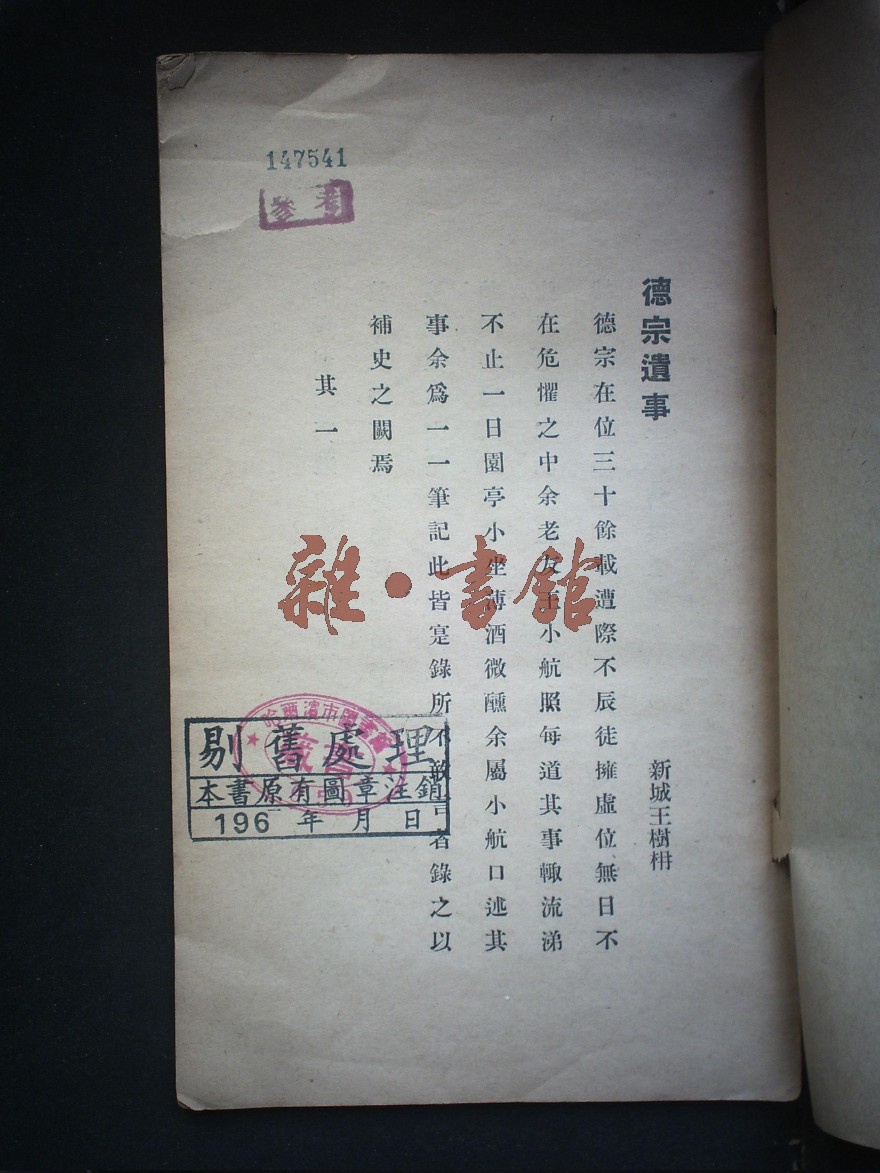 147541
參考
德宗遺事
新城王樹枏
德宗在位三十餘載遭際不辰徒擁虛位無日不
在危懼之中余老友王小航照每道其事輙流涕
不止一日園亭小坐酒微醺余屬小航口述其
事余爲一一筆記此皆寔錄所不敢言者錄之以
補史之闕焉
其一
雜·書館
哈爾濱市圖書館
藏書
剔舊處理
本書原有圖章注銷
196 年 月 日